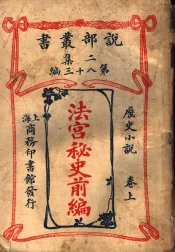 説部叢書
第二集八十三編
歷史小說 卷上
法宮祕史前編
上海商務印書館發行